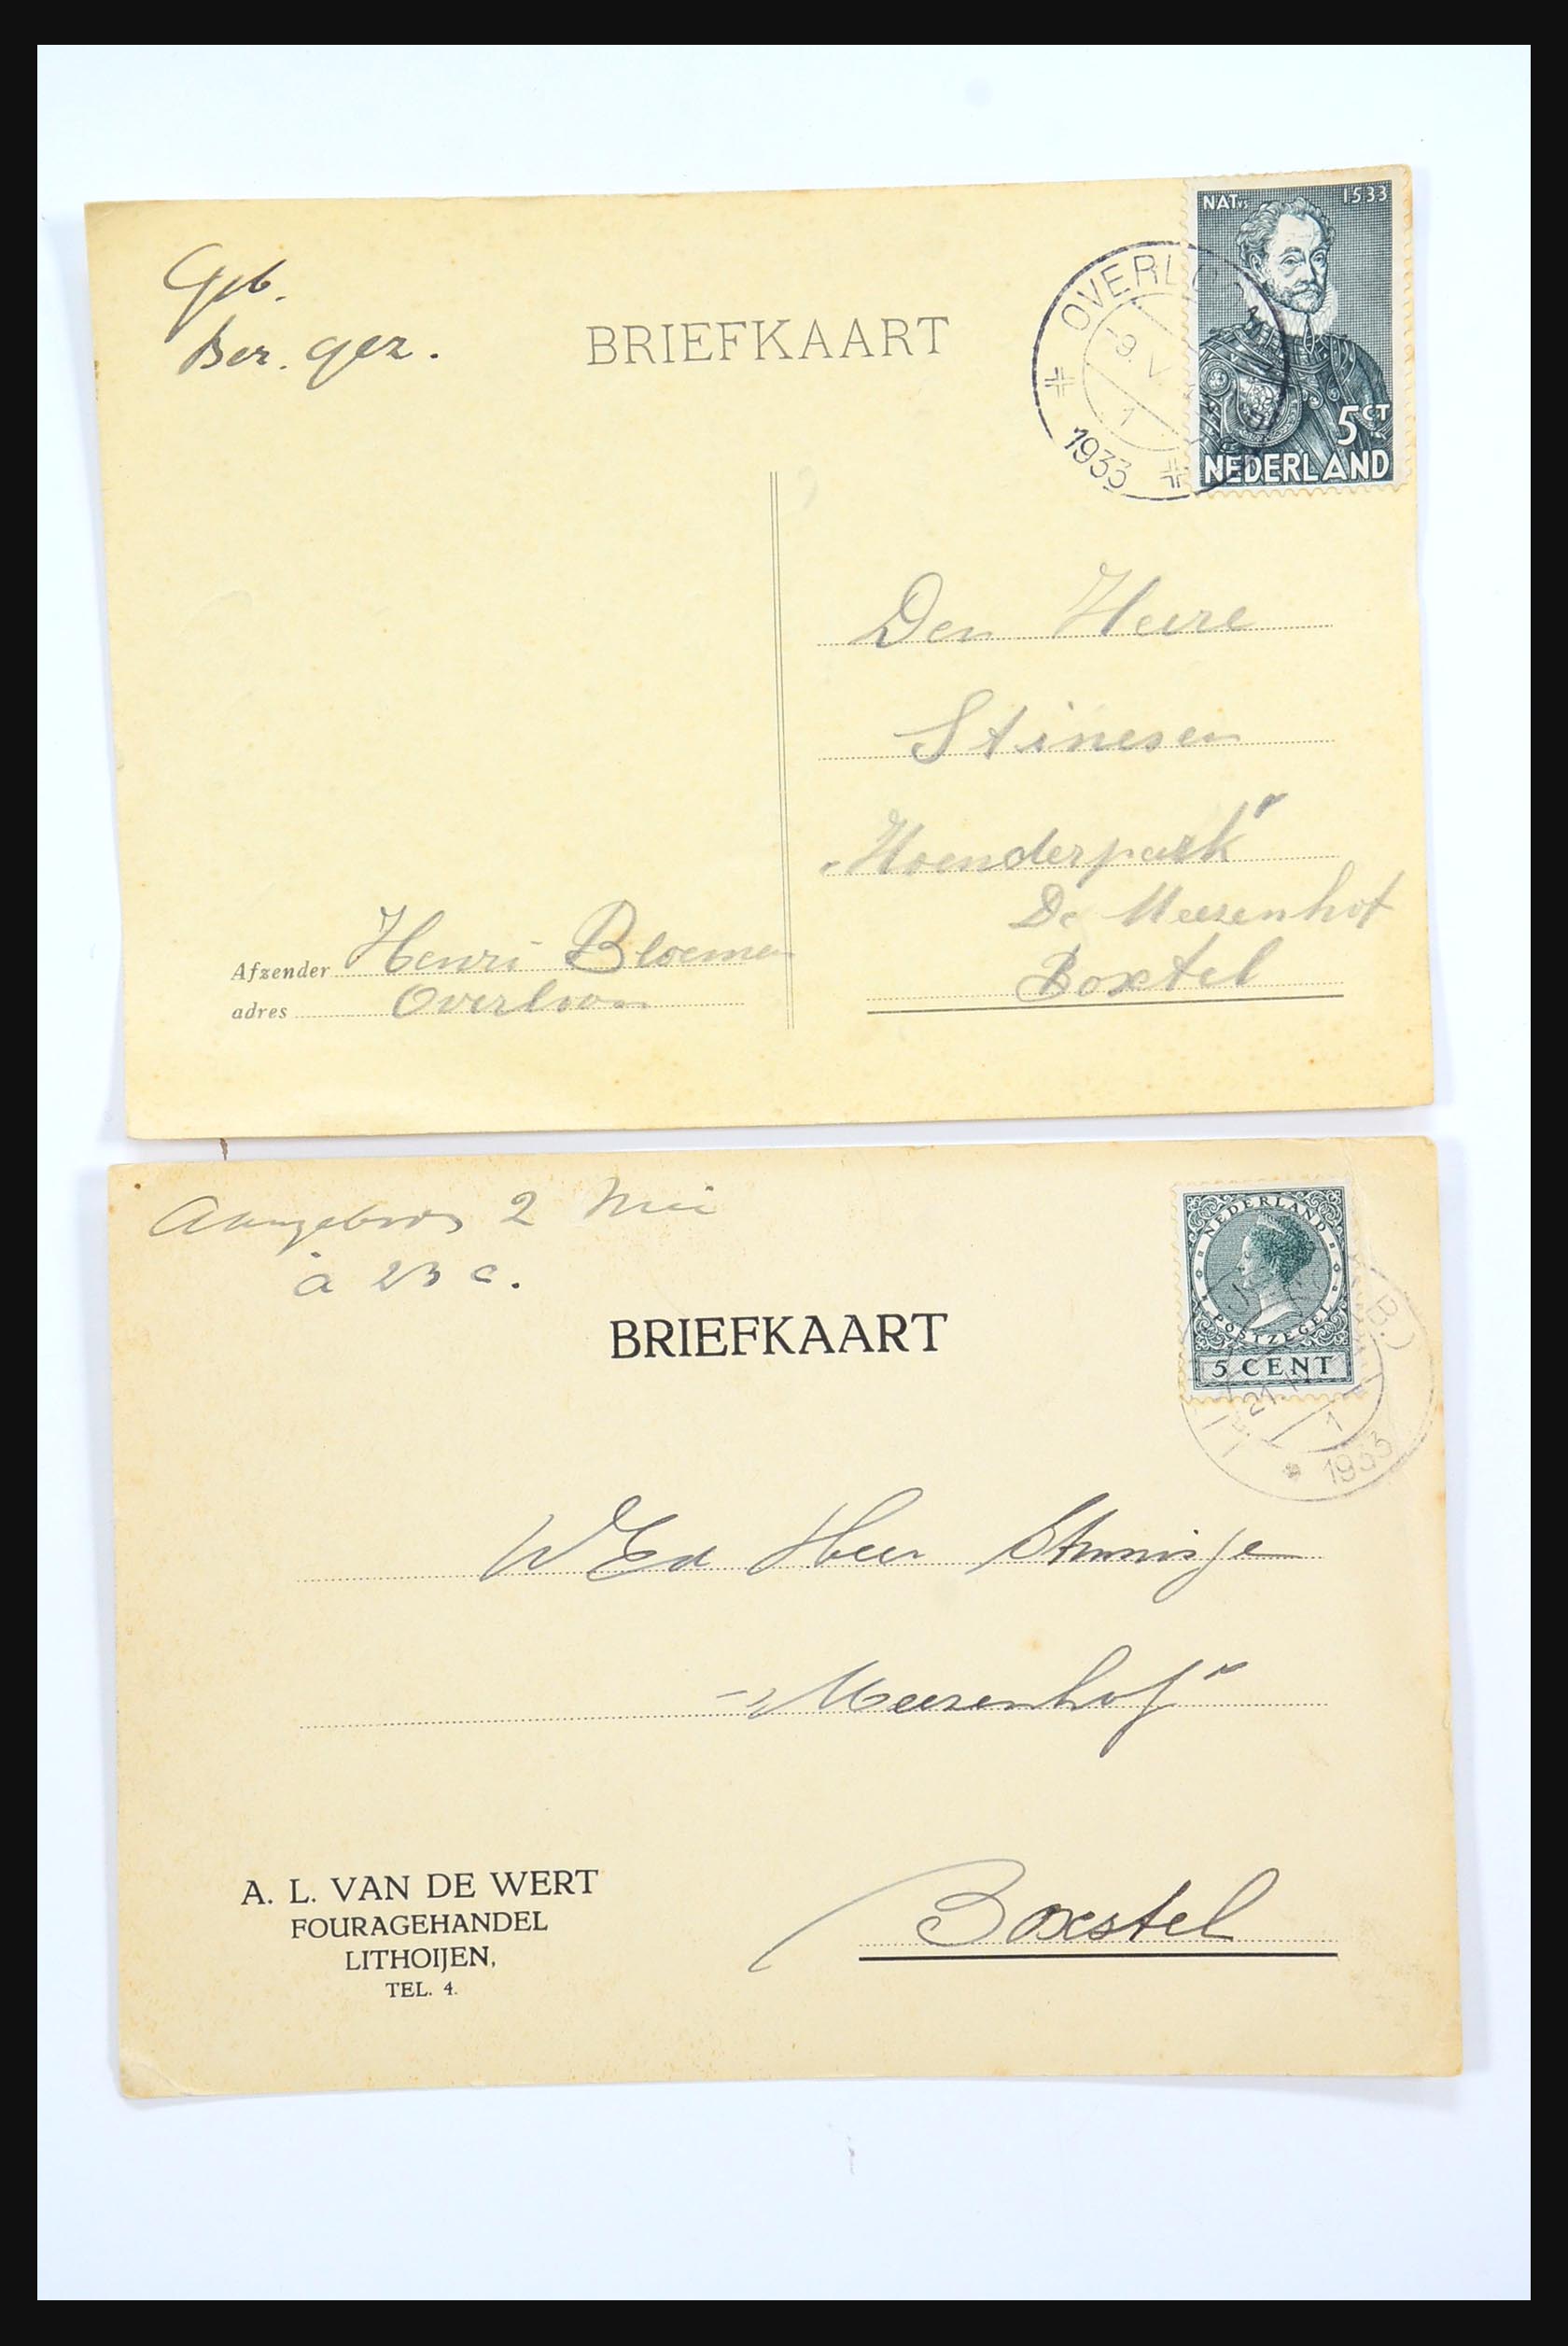 Geb.
Ber. gez.
BRIEFKAART
NATUS 1533
5 CT
NEDERLAND
OVERLO
9. V
1
1933
Den Heere
Stinesen
„Hoenderpark"
De Meerenhof
Boxtel
Afzender Henri Bloemen
adres Overloon
Aangeboden 2 Mei
à 23 c.
BRIEFKAART
NEDERLAND
POSTZEGEL
5 CENT
B.)
21
1
1933
WEd Heer
„Meerenhof"
Boxstel
A. L. VAN DE WERT
FOURAGEHANDEL
LITHOIJEN,
TEL. 4.